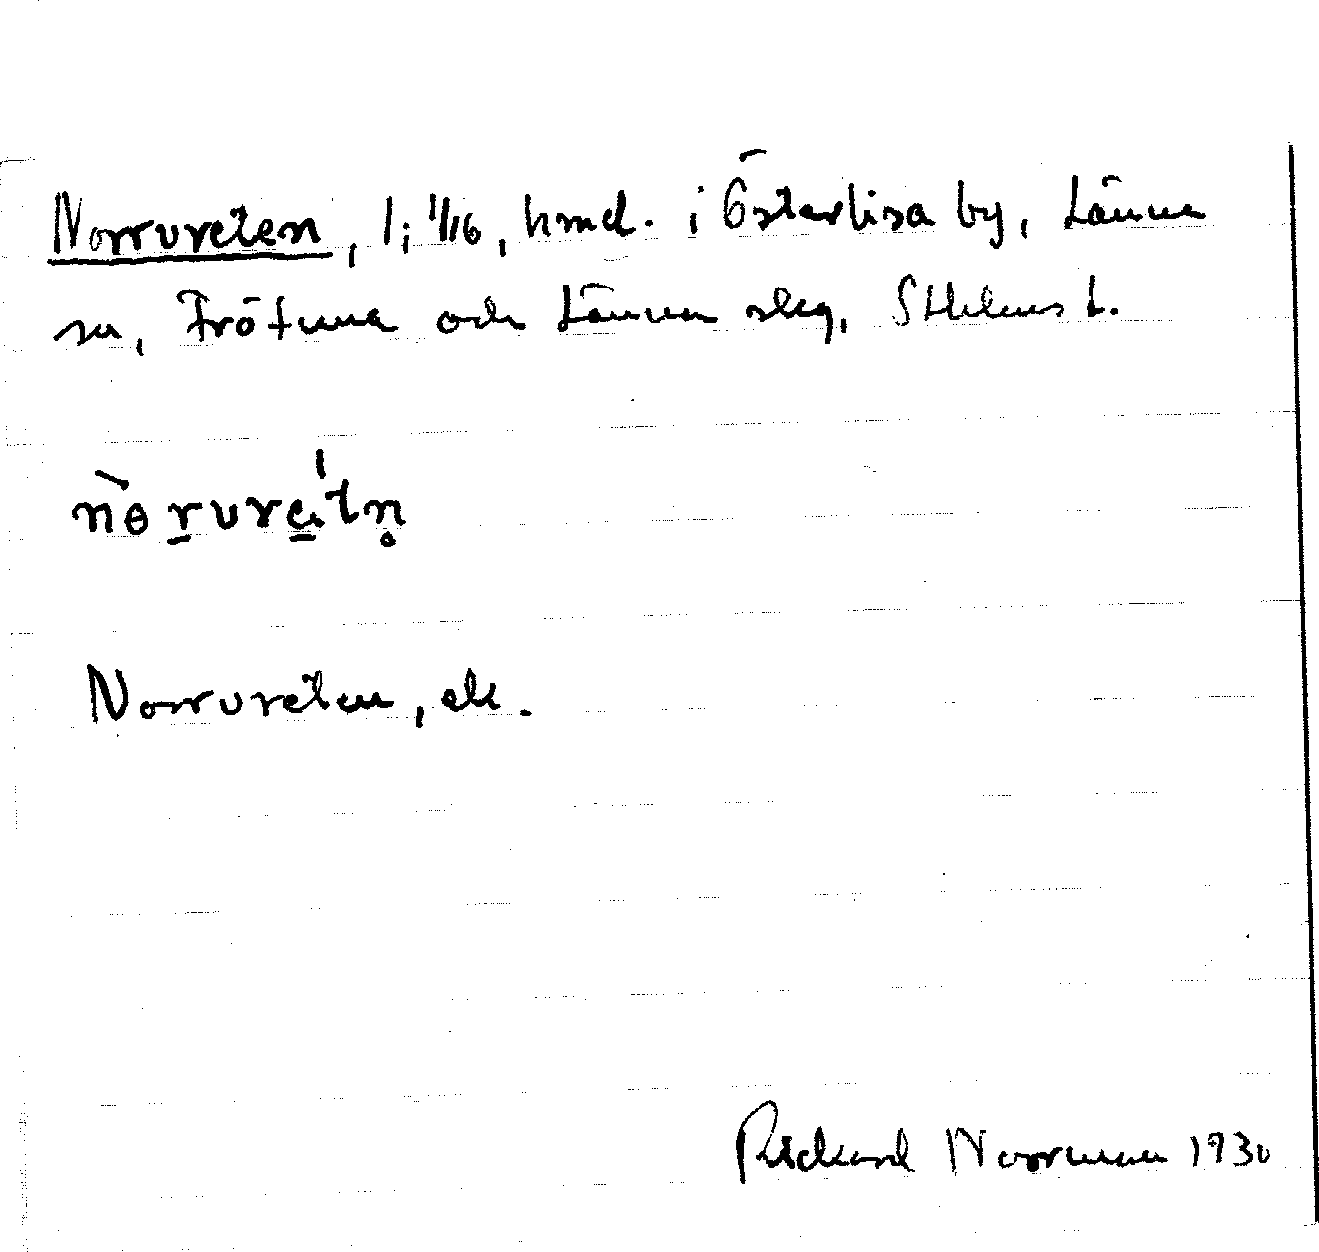 Norrvreten, 1; 1/16, hmd. i Österlisa by, Länna
sn, Frötuna och Länna slg, Sthlms l.
nɵrvre̱tn̥
Norrvreten, ek.
Rickard Norrman 1930